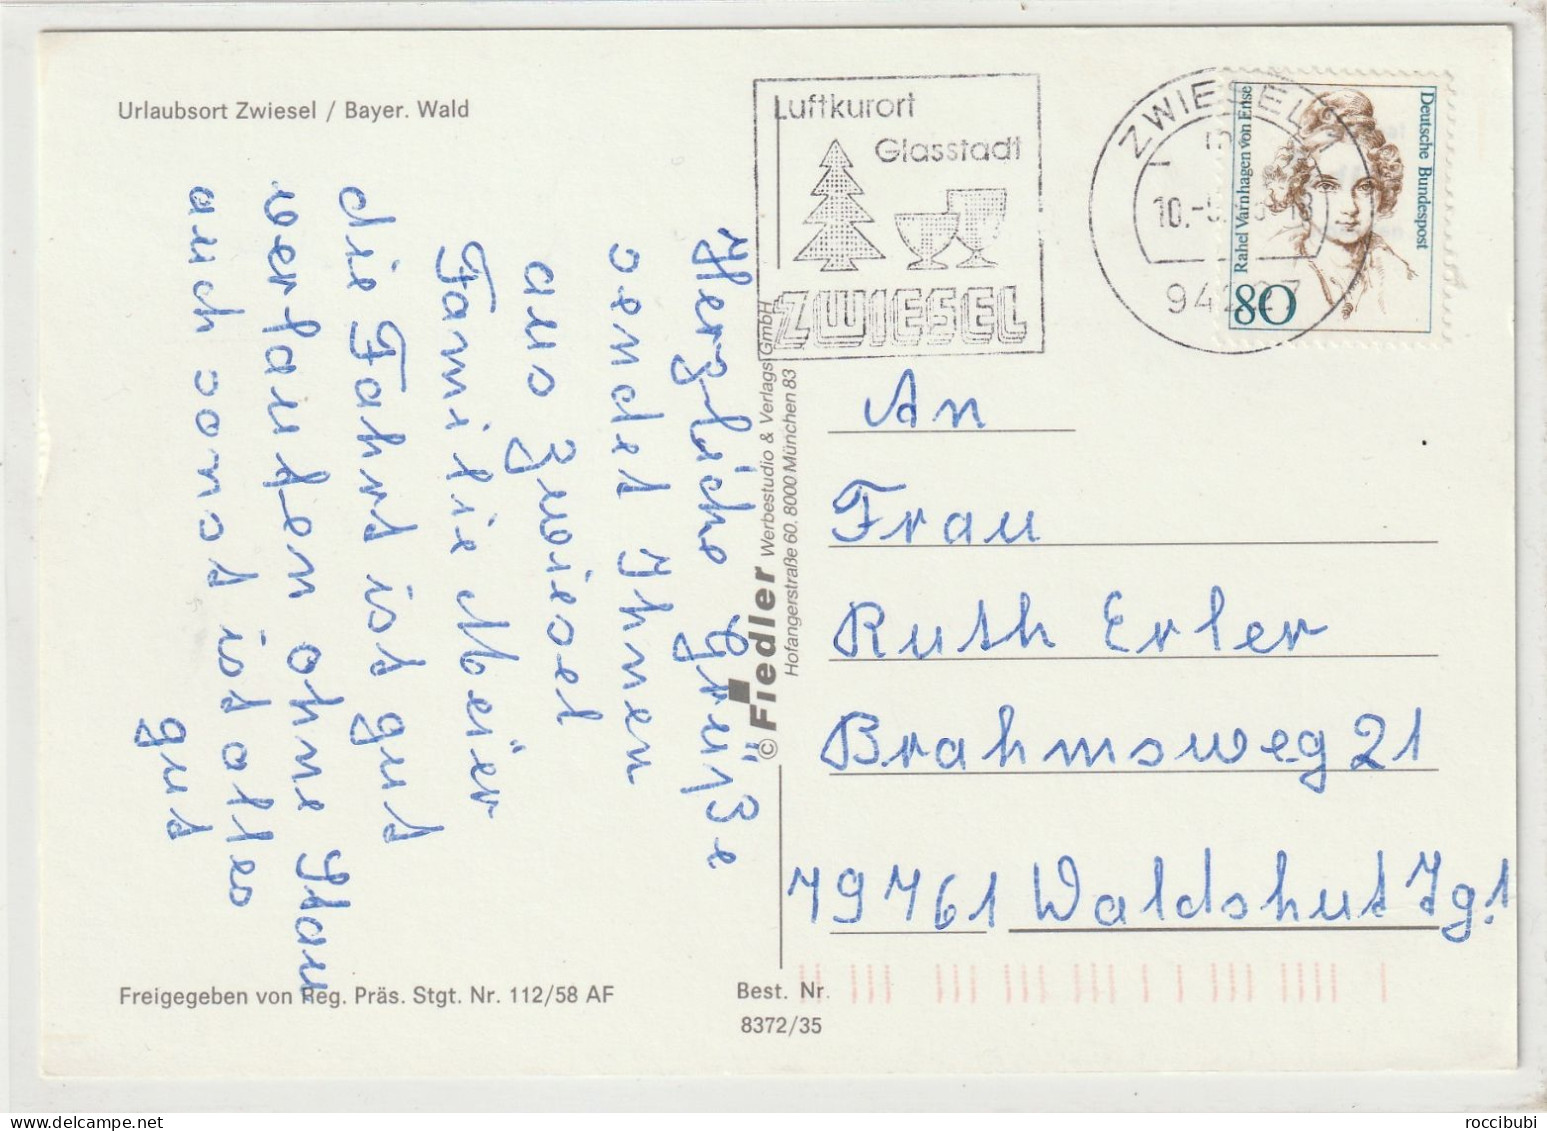 Urlaubsort Zwiesel / Bayer. Wald
Herzliche Grüße
sendet Ihnen
aus Zwiesel
Familie Meier
die Fahrt ist gut
verlaufen ohne Stau
auch sonst ist alles
gut
Freigegeben von Reg. Präs. Stgt. Nr. 112/58 AF
Best. Nr.
8372/35
© Fiedler Werbestudio & Verlags GmbH
Hofangerstraße 60. 8000 München 83
Luftkurort
Glasstadt
ZWIESEL
ZWIESEL
10.-
94227
Deutsche Bundespost
Rahel Varnhagen von Ense
80
An
Frau
Ruth Erler
Brahmsweg 21
79761 Waldshut Tg.1
roccibubi